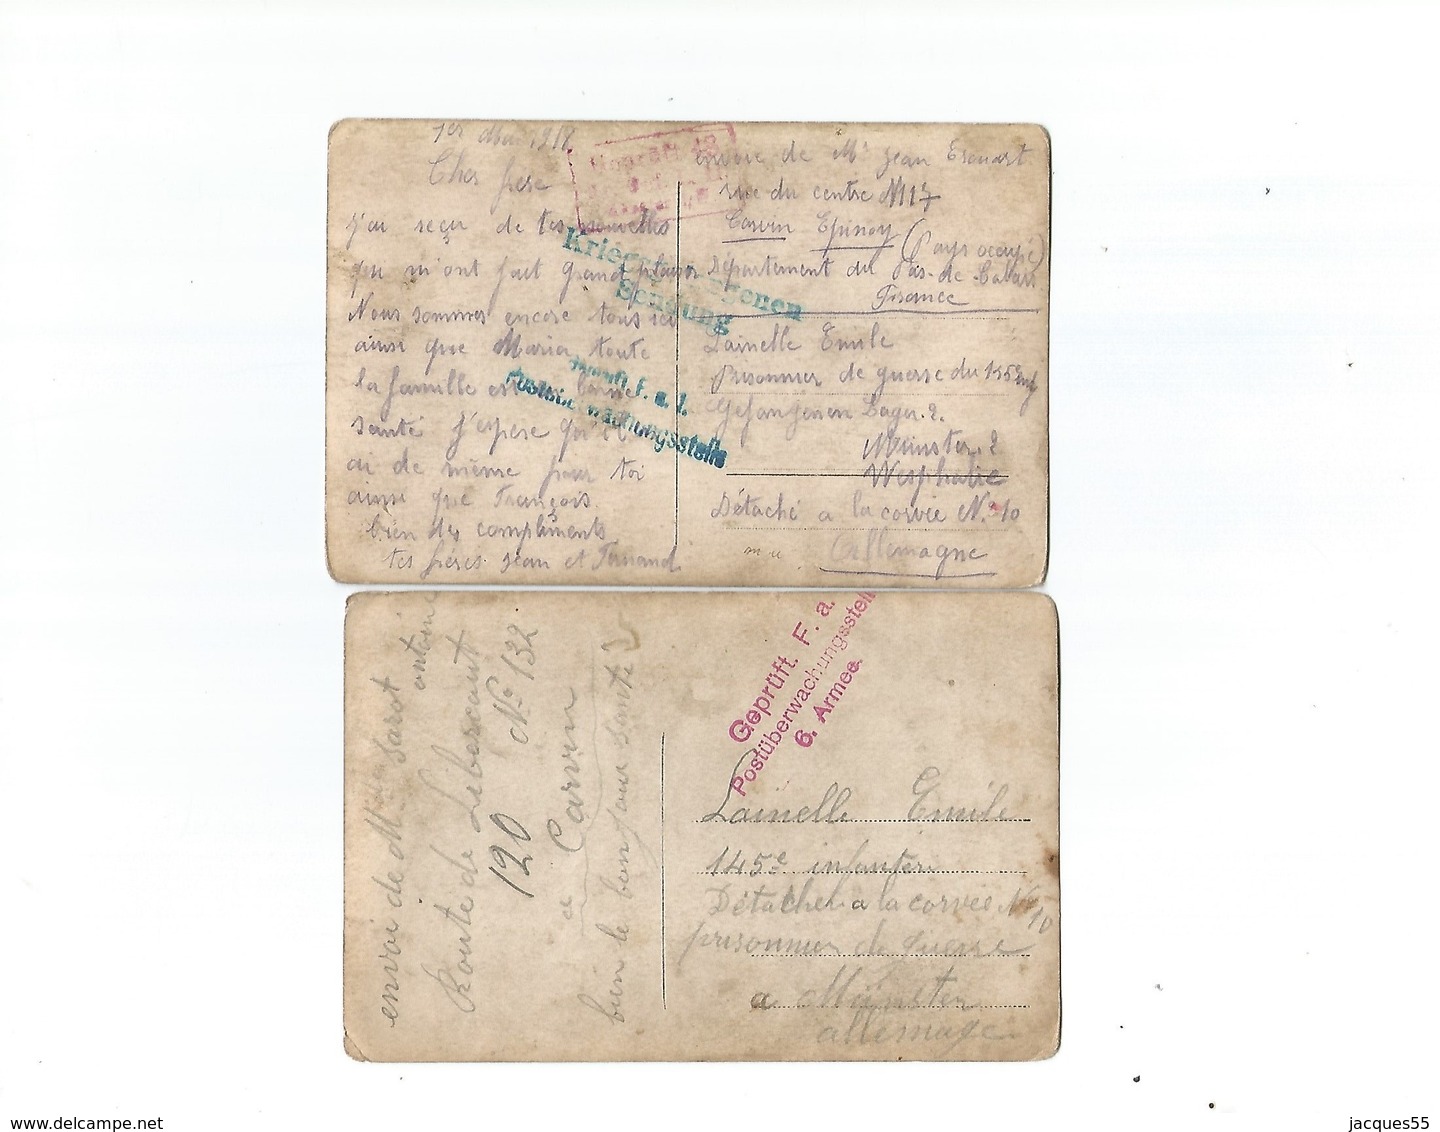 1er Mai 1918
Cher frere
j'ai reçu de tes nouvelles
qui m'ont fait grand plaisir
Nous sommes encore tous ici
ainsi que Maria toute
la famille est en bonne
santé j'espere qu'il
ai de même pour toi
ainsi que François
bien des compliments
tes frères Jean et Fernand
envoie de Mr Jean
rue du centre N117
Carvin Epinoy (Pays occupé)
Département du Pas-de-Calais
France
Lainelle Emile
Prisonnier de guerre du 145e
Gefangenen Lager. 2.
Münster. 2
Wesphalie
Détaché a la corvée No 10
Allemagne
Kriegsgefangenen
Sendung
F. a. 1.
Postüberwachungsstelle
envoi de Sarot
Route de Libercourt
120 No 132
a Carvin
bien le bonjour santé
Geprüft. F. a.
Postüberwachungsstelle
6. Armee.
Lainelle Emile
145e infanteri
Détacher a la corvée No 10
prisonnier de Guerre
a Münster
allemage
www.delcampe.net
jacques55